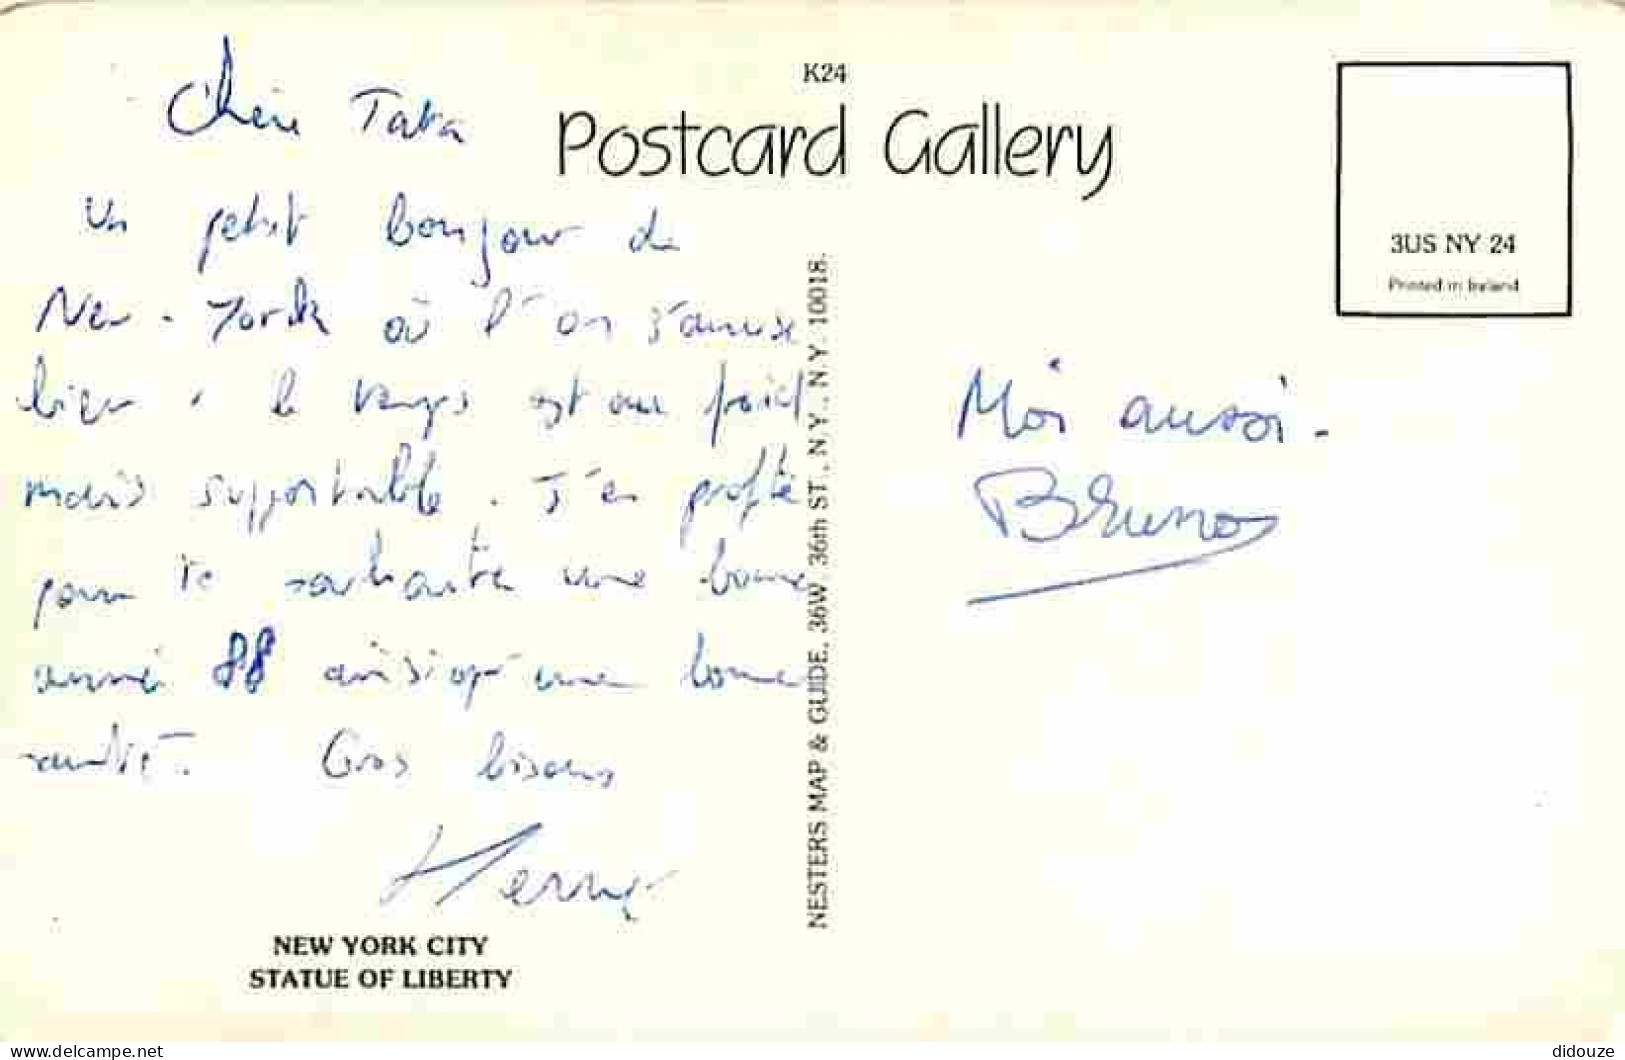 K24
Postcard Gallery
3US NY 24
Printed in Ireland
Chère Tata
Un petit bonjour de
New-York où l'on s'amuse
bien. le temps est au froid
mais supportable. J'en profite
pour te souhaiter une bonne
année 88 ainsi qu'une bonne
santé. Gros bisous
NEW YORK CITY
STATUE OF LIBERTY
NESTERS MAP & GUIDE, 36W, 36th ST., N.Y., N.Y. 10018.
Moi aussi.
Bruno
delcampe.net
didouze